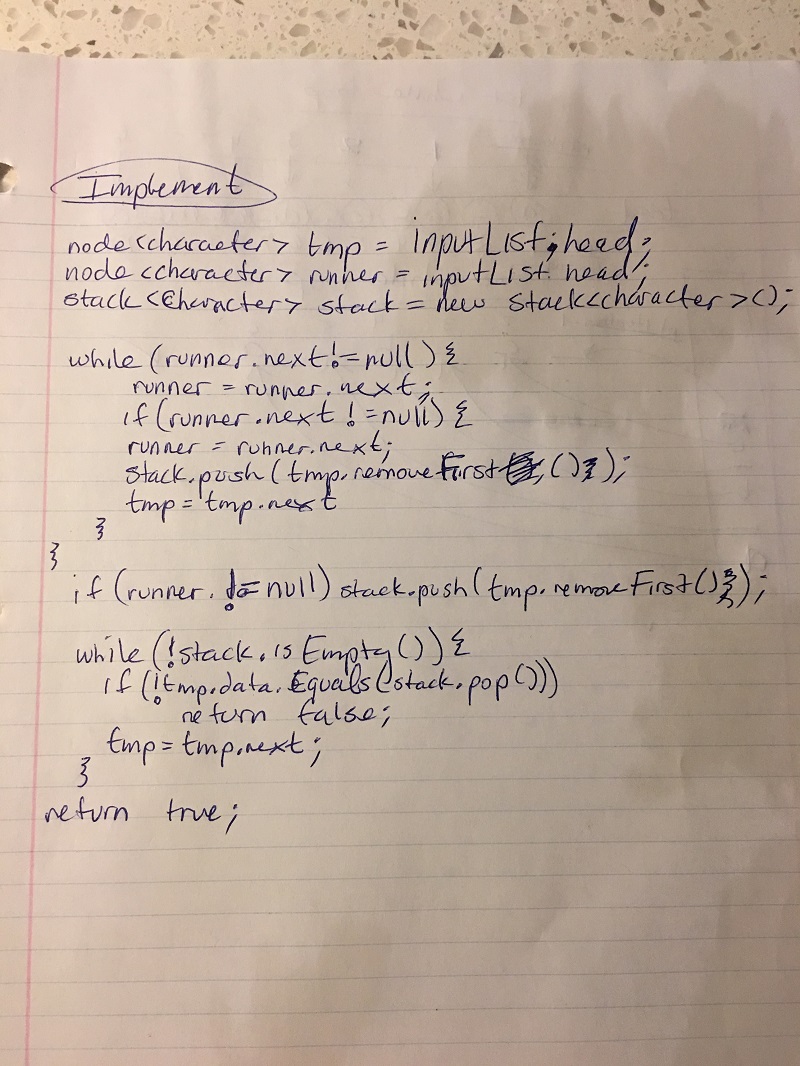 Implement
node<character> tmp = inputList.head;
node<character> runner = inputList.head;
stack<Character> stack = new Stack<character>();
while (runner.next != null) {
runner = runner.next;
if (runner.next != null) {
runner = runner.next;
stack.push(tmp.removeFirst());
tmp = tmp.next
}
}
if (runner. != null) stack.push(tmp.removeFirst());
while (!stack.isEmpty()) {
if (!tmp.data.Equals(stack.pop()))
return false;
tmp = tmp.next;
}
return true;